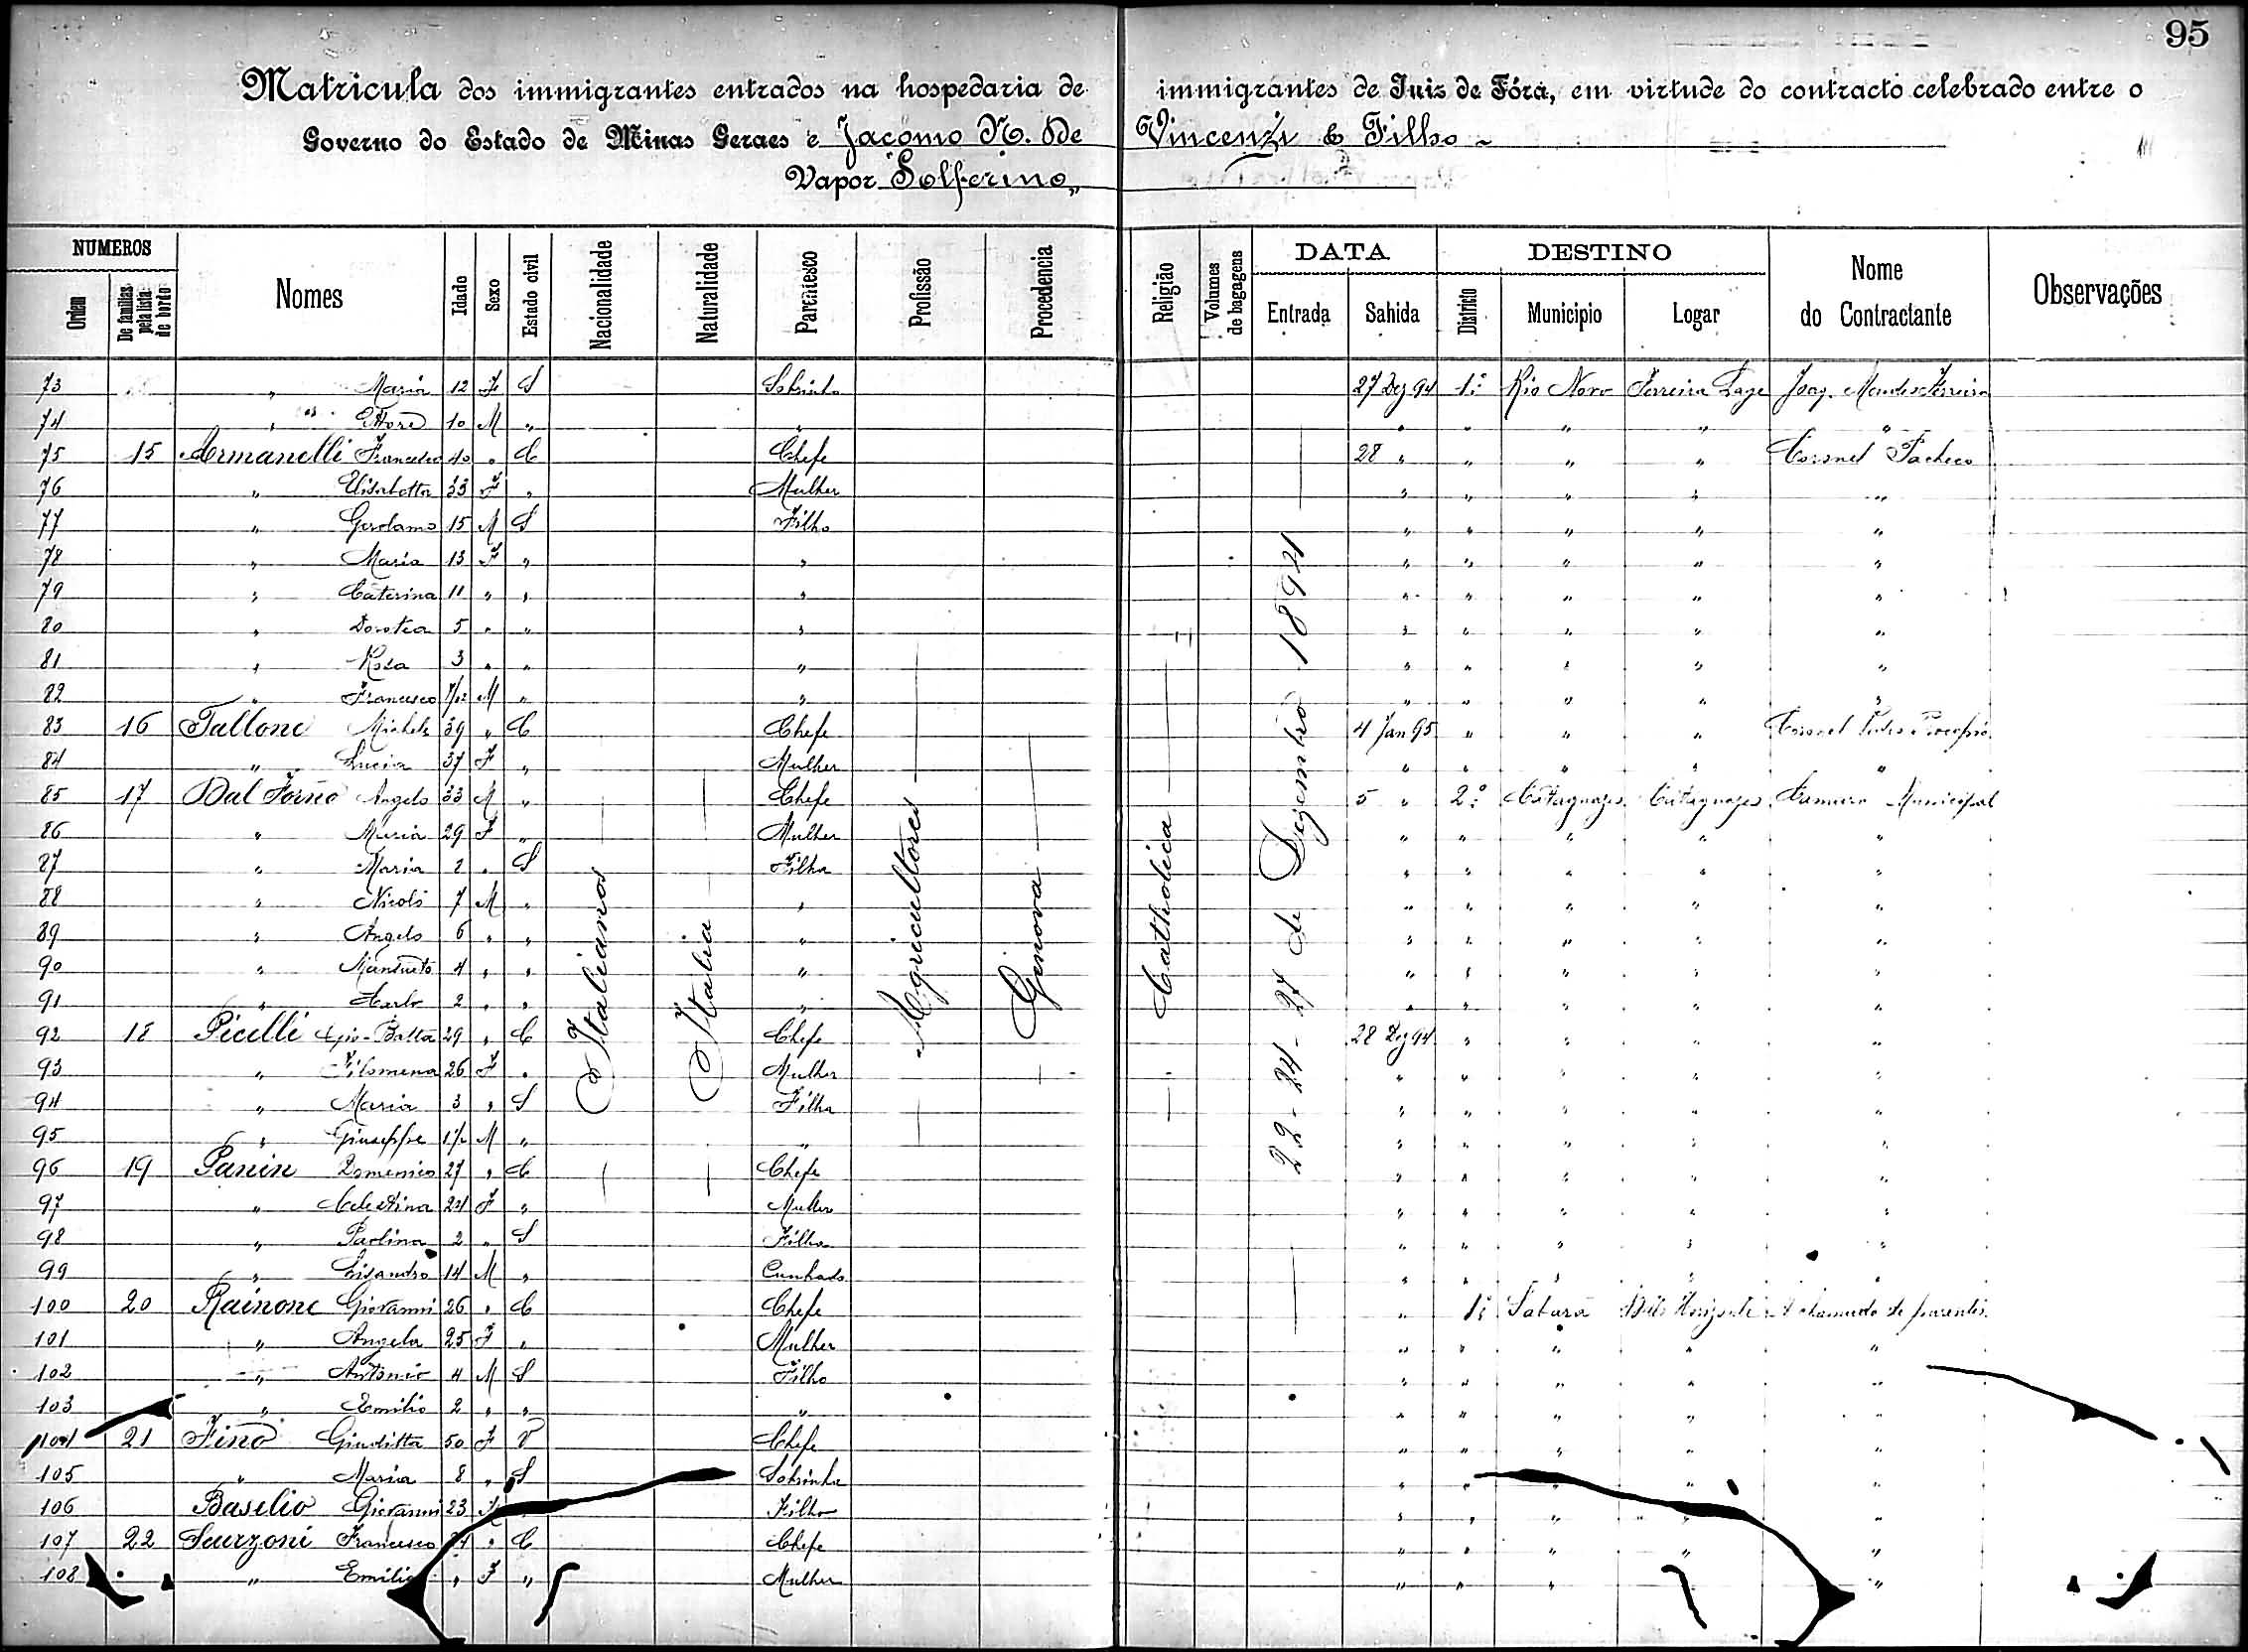 95
Matricula dos immigrantes entrados na hospedaria de immigrantes de Juiz de Fóra, em virtude do contracto celebrado entre o
Governo do Estado de Minas Geraes e Jacomo N. de Vincenzi & Filho
Vapor "Solferino"
NUMEROS
Ordem
De familias pela lista de bordo
Nomes
Idade
Sexo
Estado civil
Nacionalidade
Naturalidade
Parentesco
Profissão
Procedencia
Religião
Volumes de bagagens
DATA
Entrada
Sahida
DESTINO
Districto
Municipio
Logar
Nome do Contractante
Observações
Italianos
Italia
Agricultores
Genova
Catholica
22-24-27 de Dezembro 1894
73 " Maria 12 F S Sobrinha 27 Dez 94 1º Rio Novo Ferreira Lage Joaq. Mendes Ferreira
74 " Ettore 10 M " " " " " " "
75 15 Armanelli Francesco 40 " C Chefe 28 " " " " Coronel Pacheco
76 " Elisabetta 33 F " Mulher " " " " "
77 " Gerolamo 15 M S Filho " " " " "
78 " Maria 13 F " " " " " " "
79 " Caterina 11 " " " " " " " "
80 " Dorotea 5 " " " " " " " "
81 " Rosa 3 " " " " " " " "
82 " Francesco 7/12 M " " " " " " "
83 16 Tallone Michele 39 " C Chefe 4 Jan 95 " " " Coronel Pedro Procopio
84 " Lucia 37 F " Mulher " " " " "
85 17 Dal Forno Angelo 33 M " Chefe 5 " 2º Cataguazes Cataguazes Camara Municipal
86 " Maria 29 F " Mulher " " " " "
87 " Maria 2 " S Filha " " " " "
88 " Nicolò 7 M " " " " " " "
89 " Angelo 6 " " " " " " " "
90 " Mansueto 4 " " " " " " " "
91 " Carlo 2 " " " " " " " "
92 18 Picelli Gio-Batta 29 " C Chefe 28 Dez 94 " " " "
93 " Filomena 26 F " Mulher " " " " "
94 " Maria 3 " S Filha " " " " "
95 " Giuseppe 1/2 M " " " " " " "
96 19 Panin Domenico 27 " C Chefe " " " " "
97 " Celestina 24 F " Mulher " " " " "
98 " Paolina 2 " S Filha " " " " "
99 " Lisandro 14 M " Cunhado " " " " "
100 20 Rainone Giovanni 26 " C Chefe " 1º Sabará Bello Horizonte A chamado de parentes
101 " Angela 25 F " Mulher " " " " "
102 " Antonio 4 M S Filho " " " " "
103 " Emilio 2 " " " " " " " "
104 21 Fino Giuditta 50 F V Chefe " " " " "
105 " Maria 8 " S Sobrinha " " " "
106 Baselio Giovanni 23 Filho " " " "
107 22 Scurzoni Francesco " C Chefe " " " " "
108 " Emilia " F " Mulher " " " "